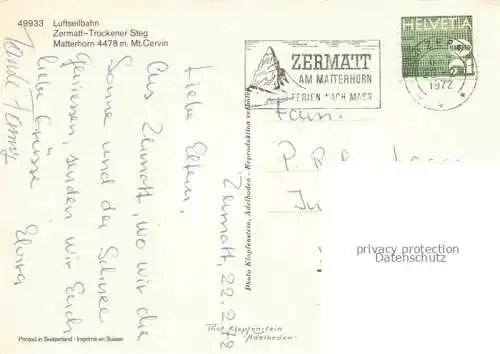 49933 Luftseilbahn
Zermatt-Trockener Steg
Matterhorn 4478 m. Mt. Cervin
ZERMATT
AM MATTERHORN
FERIEN NACH MASS
HELVETIA
1972
Zermatt, 22.2.72
Liebe Eltern,
Aus Zermatt, wo wir die
Sonne und den Schnee
geniessen, senden wir Euch
liebe Grüsse
Elvira
Fam.
P.
Photo Klopfenstein, Adelboden - Reproduktion verboten
Phot. Klopfenstein
Adelboden.
Printed in Switzerland - Imprimé en Suisse
privacy protection
Datenschutz